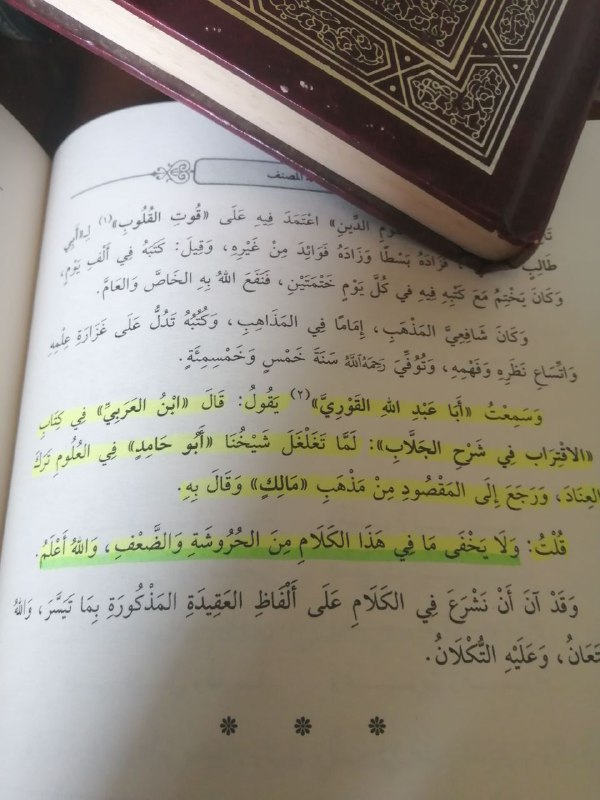 المصنف
الدِّينِ» اعْتَمَدَ فِيهِ عَلَى «قُوتِ القُلُوبِ»(١) لِـ«أَبِي
طَالِبٍ فَزَادَهُ بَسْطًا وَزَادَهُ فَوَائِدَ مِنْ غَيْرِهِ، وَقِيلَ: كَتَبَهُ فِي أَلْفِ يَوْمٍ،
وَكَانَ يَخْتِمُ مَعَ كَتْبِهِ فِيهِ فِي كُلِّ يَوْمٍ خَتْمَتَيْنِ، فَنَفَعَ اللهُ بِهِ الخَاصَّ وَالعَامَّ.
وَكَانَ شَافِعِيَّ المَذْهَبِ، إِمَامًا فِي المَذَاهِبِ، وَكُتُبُهُ تَدُلُّ عَلَى غَزَارَةِ عِلْمِهِ
وَاتِّسَاعِ نَظَرِهِ وَفَهْمِهِ، وَتُوُفِّيَ رَحِمَهُ اللَّهُ سَنَةَ خَمْسٍ وَخَمْسِمِئَةٍ.
وَسَمِعْتُ «أَبَا عَبْدِ اللهِ القَوْرِيَّ»(٢) يَقُولُ: قَالَ «ابْنُ العَرَبِيِّ» فِي كِتَابِ
«الاقْتِرَابِ فِي شَرْحِ الجَلَّابِ»: لَمَّا تَغَلْغَلَ شَيْخُنَا «أَبُو حَامِدٍ» فِي العُلُومِ تَرَكَ
العِنَادَ، وَرَجَعَ إِلَى المَقْصُودِ مِنْ مَذْهَبِ «مَالِكٍ» وَقَالَ بِهِ.
قُلْتُ: وَلَا يَخْفَى مَا فِي هَذَا الكَلَامِ مِنَ الحُرُوشَةِ وَالضَّعْفِ، وَاللهُ أَعْلَمُ.
وَقَدْ آنَ أَنْ نَشْرَعَ فِي الكَلَامِ عَلَى أَلْفَاظِ العَقِيدَةِ المَذْكُورَةِ بِمَا تَيَسَّرَ، وَاللهُ
تَعَانُ، وَعَلَيْهِ التُّكْلَانُ.